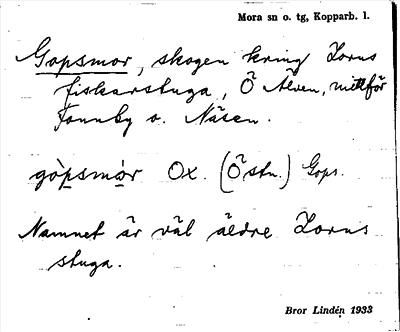 Mora sn o. tg, Kopparb. l.
Gopsmor, skogen kring Zorns
fiskarstuga, Ö Älven, mittför
Fonnby o. Näsen.
gòpsmór Ox. (Östn.) Gops.
Namnet är väl äldre Zorns
stuga.
Bror Lindén 1933